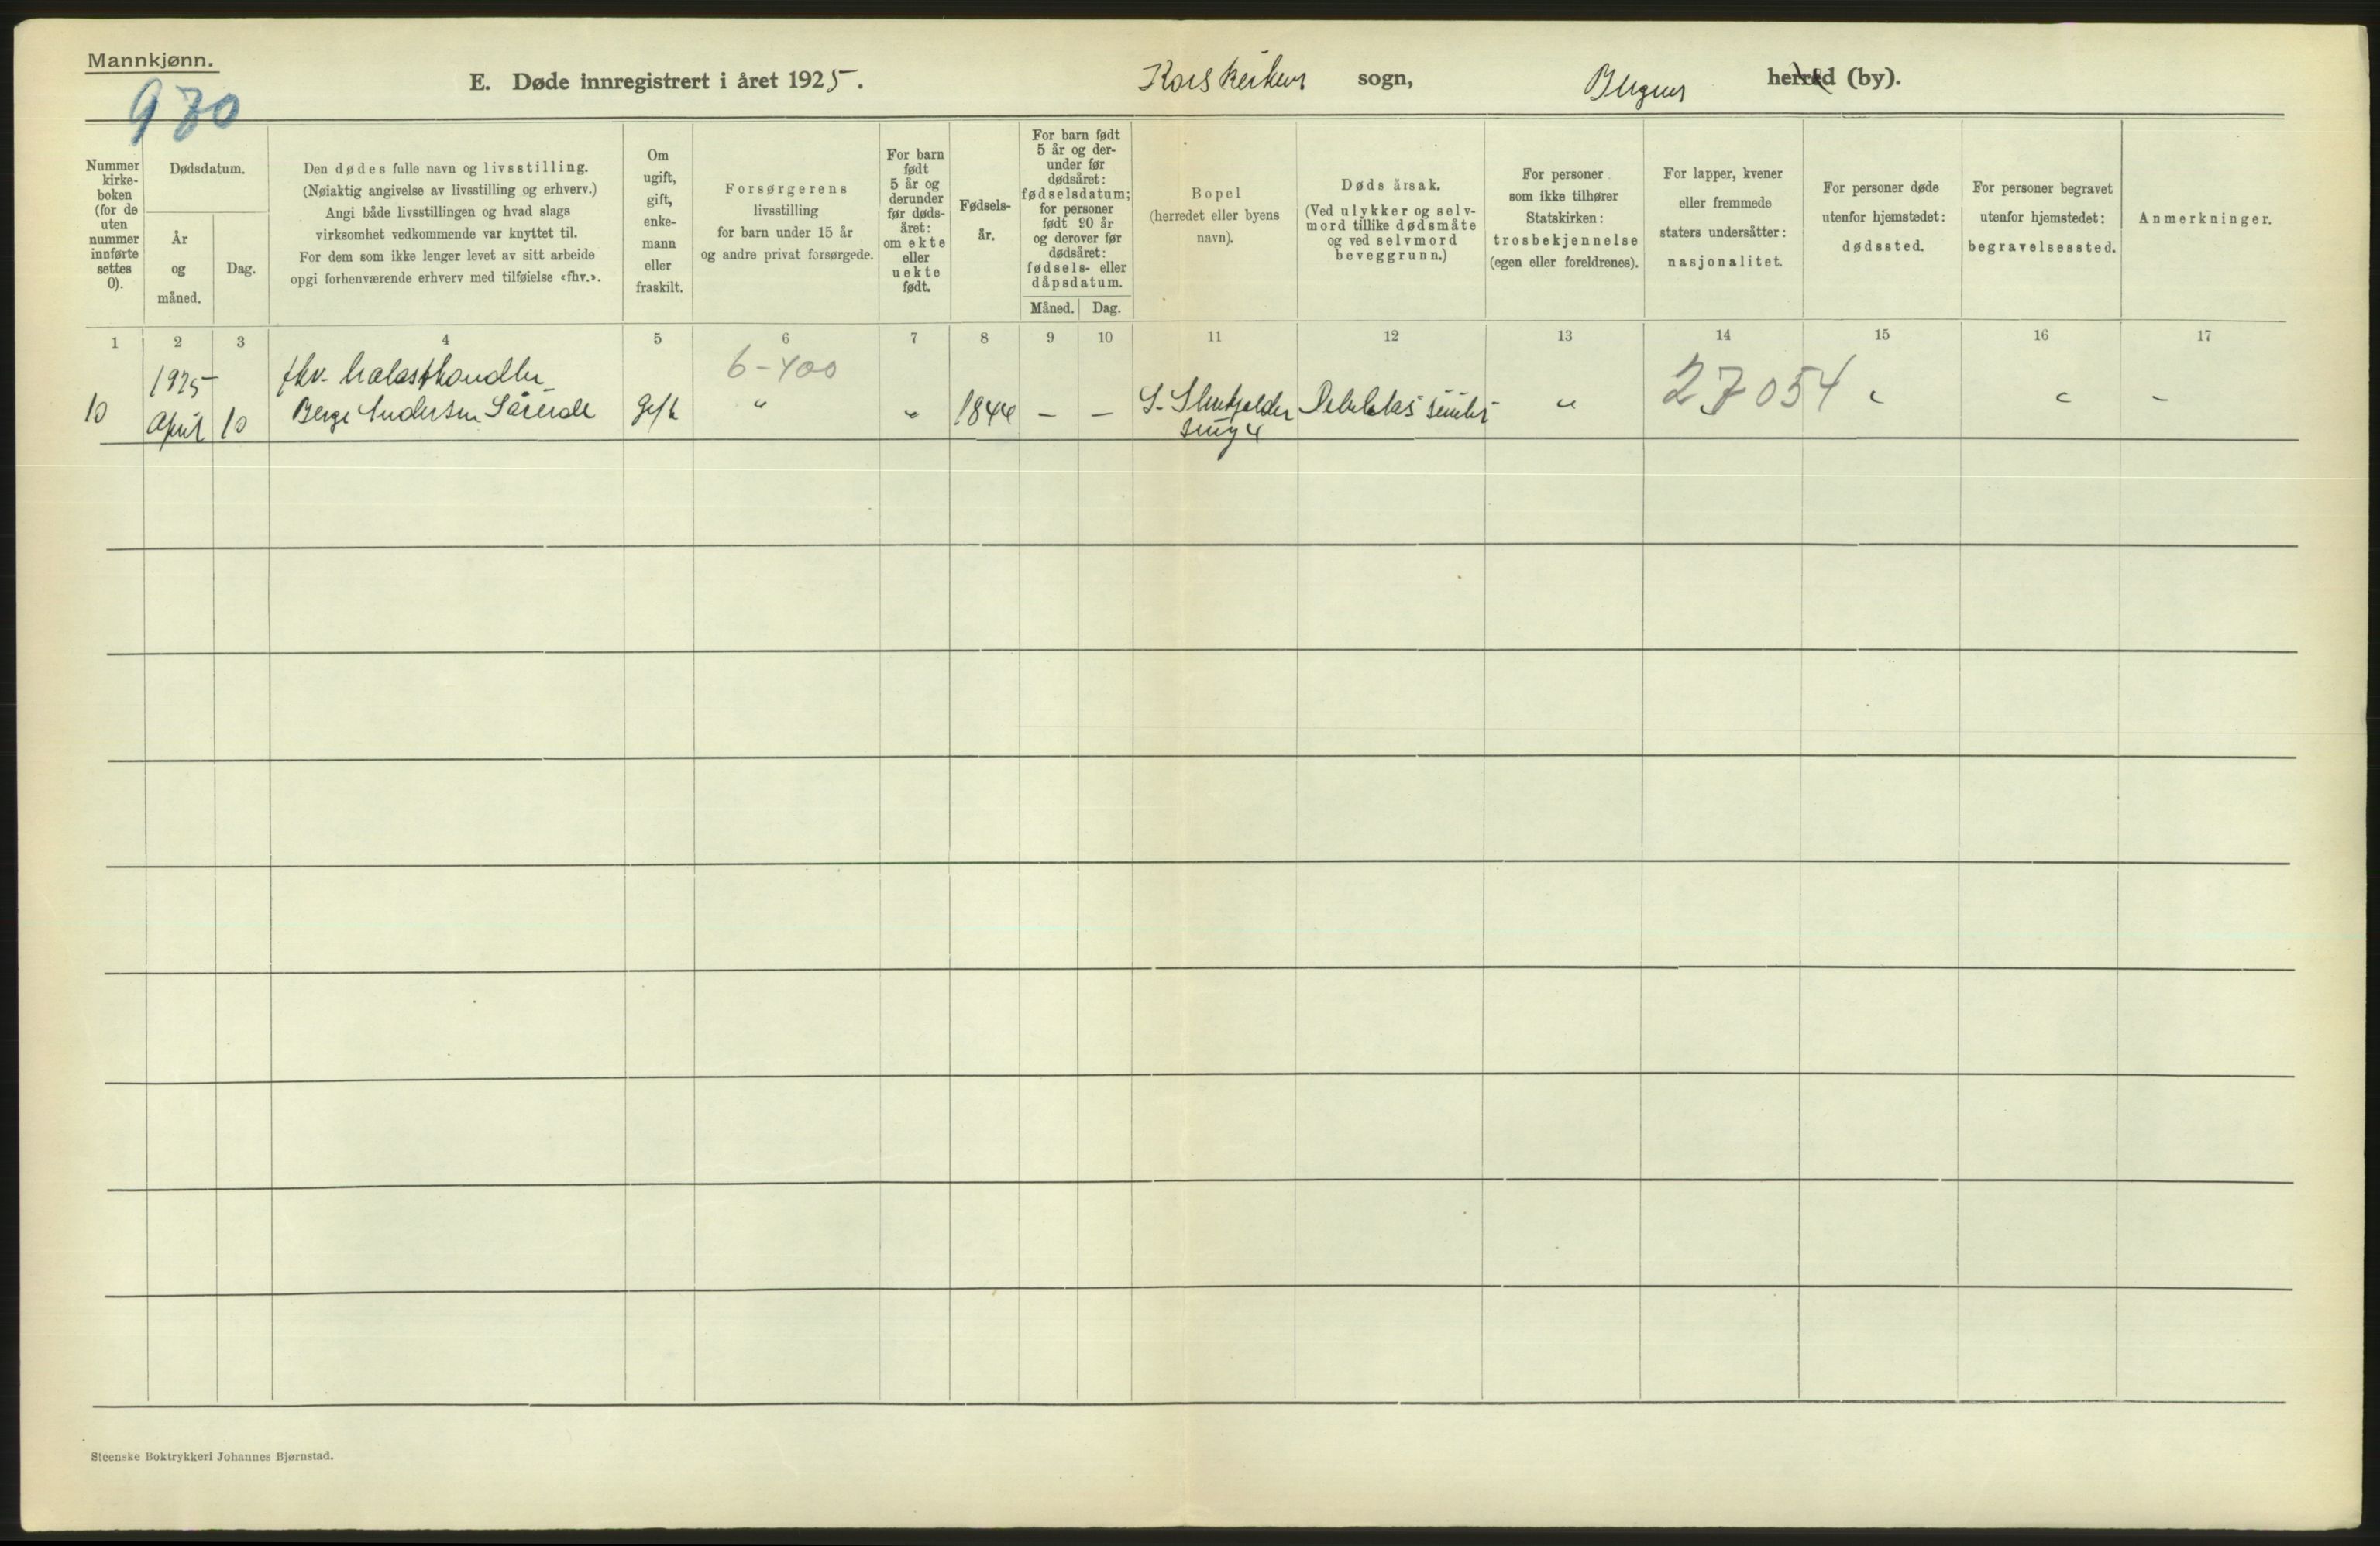 Mannkjønn.
E. Døde innregistrert i året 1925.
Korskirkens sogn,
Bergens herred (by).
970
Nummer
kirke-
boken
(for de
uten
nummer
innførte
settes
0).
Dødsdatum.
År
og
måned.
Dag.
Den dødes fulle navn og livsstilling.
(Nøiaktig angivelse av livsstilling og erhverv.)
Angi både livsstillingen og hvad slags
virksomhet vedkommende var knyttet til.
For dem som ikke lenger levet av sitt arbeide
opgi forhenværende erhverv med tilføielse «fhv.».
Om
ugift,
gift,
enke-
mann
eller
fraskilt.
Forsørgerens
livsstilling
for barn under 15 år
og andre privat forsørgede.
For barn
født
5 år og
derunder
før døds-
året:
om ekte
eller
uekte
født.
Fødsels-
år.
For barn født
5 år og der-
under før
dødsåret:
fødselsdatum;
for personer
født 90 år
og derover før
dødsåret:
fødsels- eller
dåpsdatum.
Måned.
Dag.
Bopel
(herredet eller byens
navn).
Døds årsak.
(Ved ulykker og selv-
mord tillike dødsmåte
og ved selvmord
beveggrunn.)
For personer
som ikke tilhører
Statskirken:
trosbekjennelse
(egen eller foreldrenes).
For lapper, kvener
eller fremmede
staters undersåtter:
nasjonalitet.
For personer døde
utenfor hjemstedet:
dødssted.
For personer begravet
utenfor hjemstedet:
begravelsessted.
Anmerkninger.
1 2 3 4 5 6 7 8 9 10 11 12 13 14 15 16 17
1925 fhv. 6-400
10 April 10 Berge Andersen gift " " 1844 - - S. " 27054 " " -
smug 4
Steenske Boktrykkeri Johannes Bjørnstad.